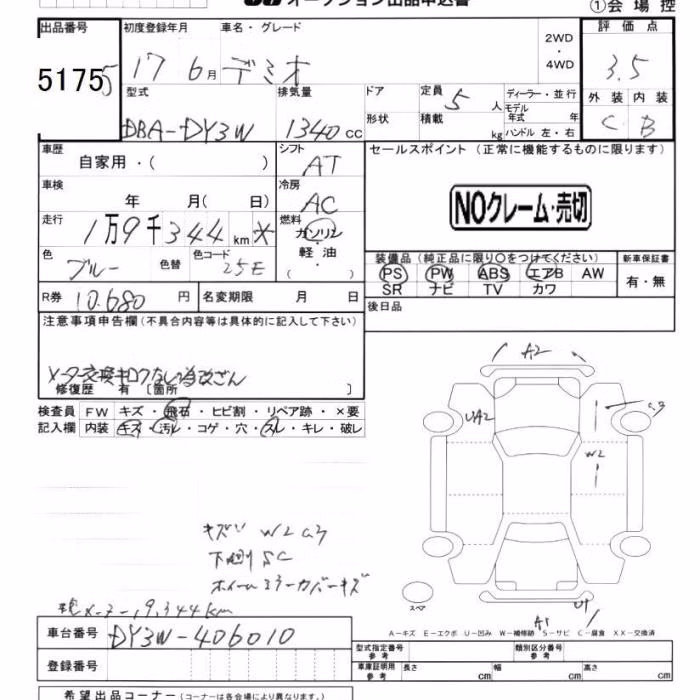 オークション出品申込書
①会場控
出品番号 初度登録年月 車名・グレード 2WD・4WD 評価点
51755 17 6月 デミオ 3.5
型式 排気量 ドア 定員 5人 ディーラー・並行 外装 内装
DBA-DY3W 1340cc 形状 積載 kg モデル年式 年 ハンドル 左・右 C B
車歴 自家用・( ) シフト AT セールスポイント (正常に機能するものに限ります)
車検 年 月( 日) 冷房 AC
NOクレーム・売切
走行 1万9千344km * 燃料 ガソリン・軽油・( )
色 ブルー 色替 色コード 25E
装備品 (純正品に限り○をつけてください) 新車保証書
PS PW ABS エアB AW 有・無
SR ナビ TV カワ
R券 10.680円 名変期限 月 日 後日品
注意事項申告欄 (不具合内容等は具体的に記入して下さい)
メーター交換キロクなしの為改ざん
修復歴 有 〔箇所 〕
検査員 FW キズ・飛石・ヒビ割・リペア跡・×要
記入欄 内装 キズ・汚レ・コゲ・穴・スレ・キレ・破レ
A2
UA2
W2
キズ W2
下廻りSC
ホイールミラーカバーキズ
現メーター19,344km
スペア
U1
A1
A-キズ E-エクボ U-凹み W-補修跡 S-サビ C-腐食 XX-交換済
車台番号 DY3W-406010
登録番号
型式指定番号 参考 類別区分番号 参考
車庫証明用 参考 長さ cm 幅 cm 高さ cm
希望出品コーナー (コーナーは各会場により異なります。)